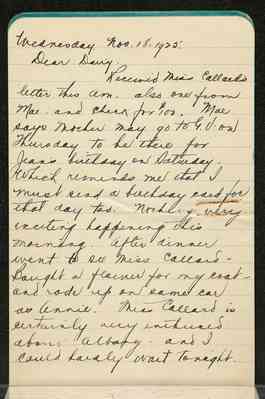 Wednesday Nov. 18, 1925.
Dear Dairy,
Received Miss Callard's
letter this am. also one from
Mae. and check for $100. Mae
says Mother may go to G.V. on
Thursday to be there for
Jean's birthday on Saturday.
Which reminds me that I
must send a birthday card for
that day too. Nothing very
exciting happening this
morning. After dinner
went to see Miss Callard -
Bought a flower for my coat -
and rode up on same car
as Annie. Miss Callard is
certainly very enthused
about Albany - and I
could hardly wait tonight.